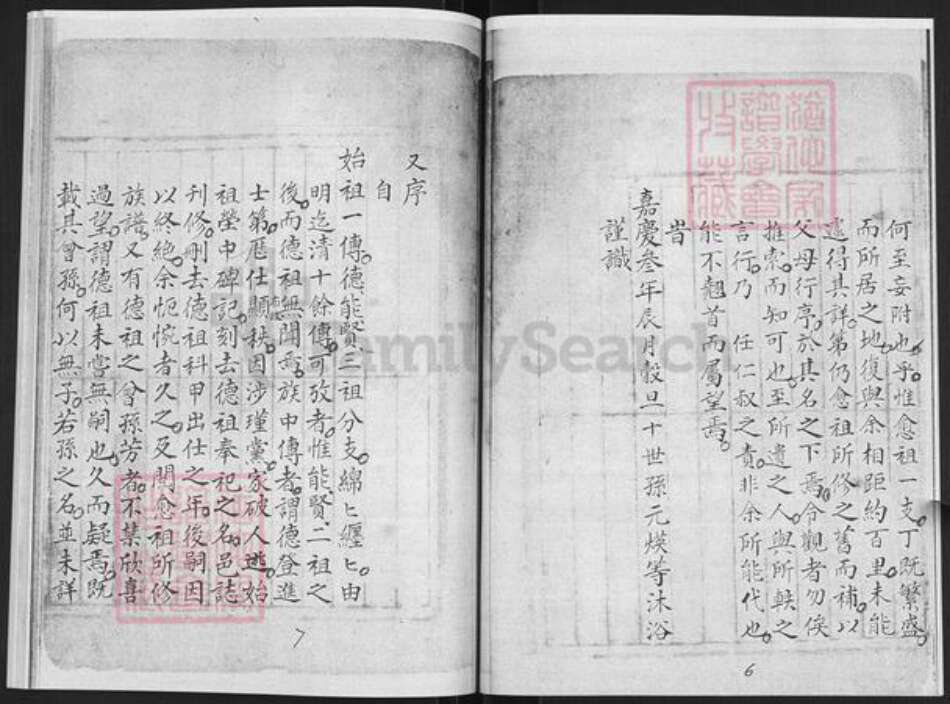 何至妄附也乎惟愈祖一支丁既繁盛
而所居之地復與余相距約百里未能
遠得其詳第仍愈祖所修之舊而補以
父母行序於其名之下焉令觀者勿俟
推索而知可也至所遺之人與所軼之
言行乃 任仁叔之責非余所能代也
能不翹首而屬望焉
旹
嘉慶叁年辰月穀旦十世孫元煐等沐浴
謹識
6
又序
自
始祖一傳德能賢三祖分支綿ヒ纏ヒ由
明迄清十餘傳可攷者惟能賢二祖之
後而德祖無聞焉族中傳者謂德登進
士第歷仕顯秩因涉瑾黨家破人逃始
祖塋中碑記刻去德祖奉祀之名邑誌
刊修刪去德祖科甲出仕之年後嗣因
以終絶余怋惋者久之及閱愈祖所修
族譜又有德祖之曾孫芳者不禁欣喜
過望謂德祖未嘗無嗣也久而疑焉既
載其曾孫何以無子若孫之名並未詳
7
FamilySearch